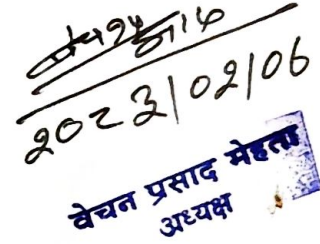 2023/02/06
वेचन प्रसाद मेहता
अध्यक्ष